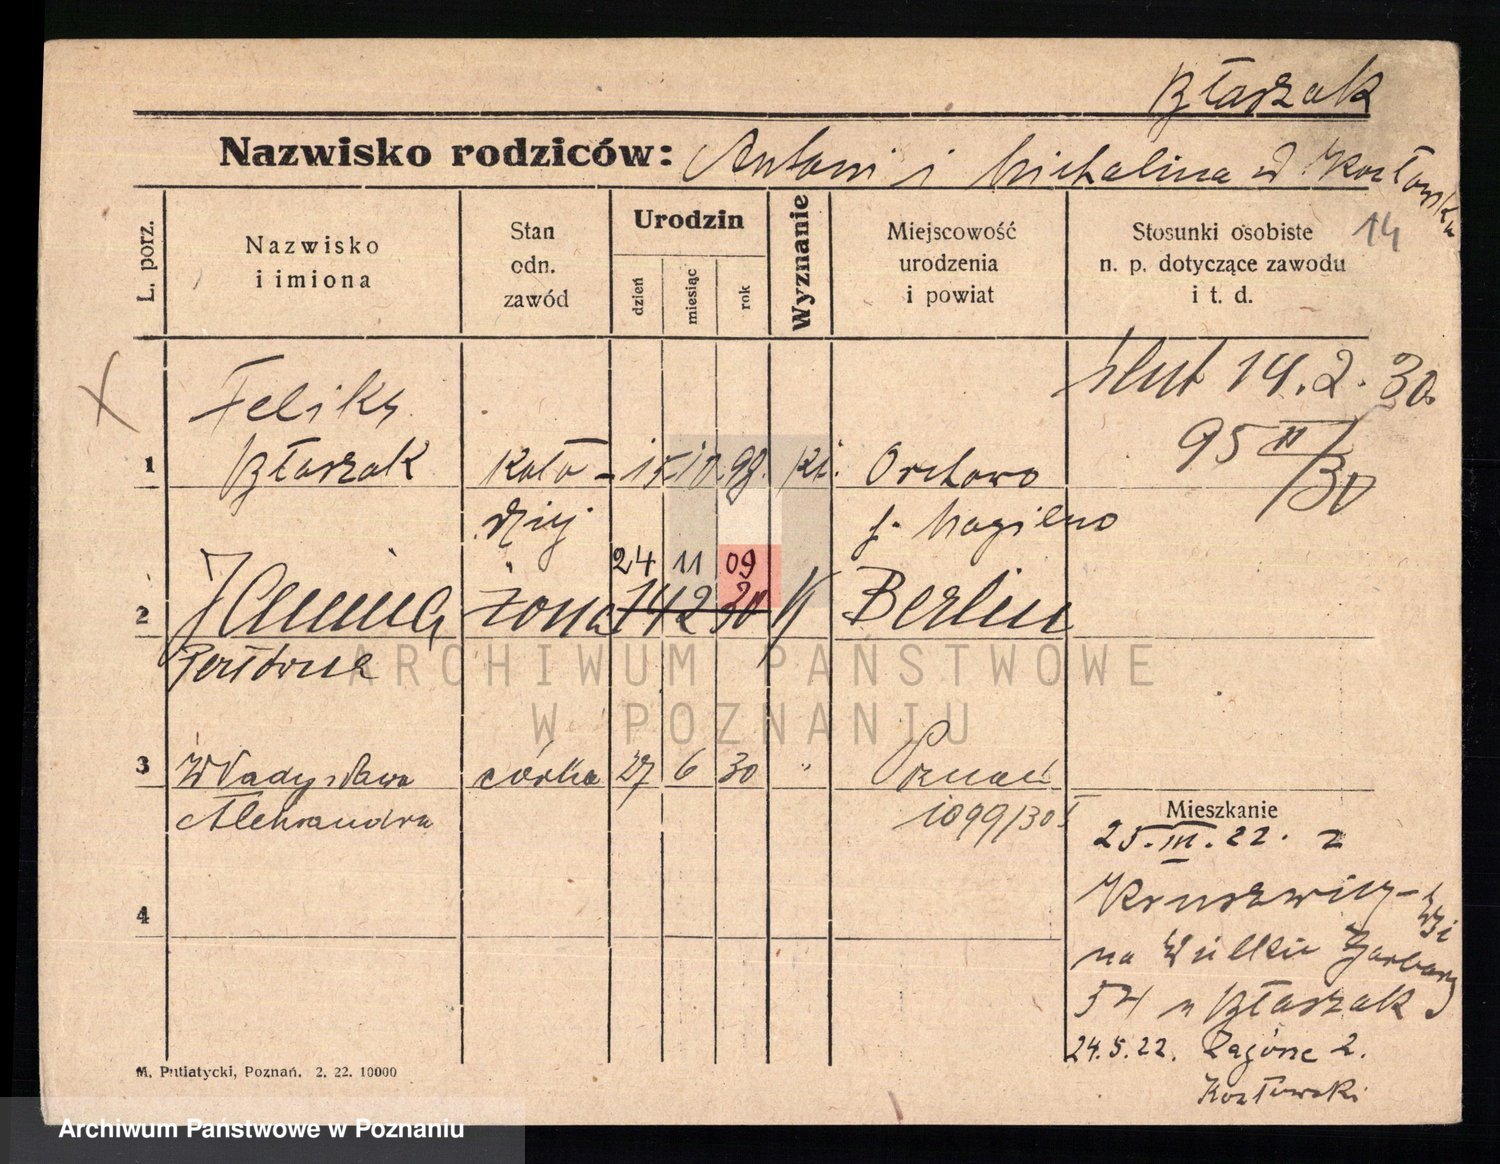 Błaszak
Nazwisko rodziców: Antoni i Michalina z Kozłowskich
14
L. porz.
Nazwisko
i imiona
Stan
odn.
zawód
Urodzin
dzień
miesiąc
rok
Wyznanie
Miejscowość
urodzenia
i powiat
Stosunki osobiste
n. p. dotyczące zawodu
i t. d.
1
Feliks
Błaszak
Koło-
dziej
15 10 98.
kt.
Orchowo
p. Mogilno
ślub 14.2.30
95 II/30
2
Janina
żona
24 11 09
14 2 30
Berlin
3
Władysława
Aleksandra
córka
27 6 30
"
Poznań
1099/30 I
4
Mieszkanie
25.III.22. z
Kruszwicy-
na Wielkie Garbary
54 u Błaszak
24.5.22. Zagórze 2.
Kozłowski
M. Putiatycki, Poznań. 2. 22. 10000
ARCHIWUM PAŃSTWOWE
W POZNANIU
Archiwum Państwowe w Poznaniu